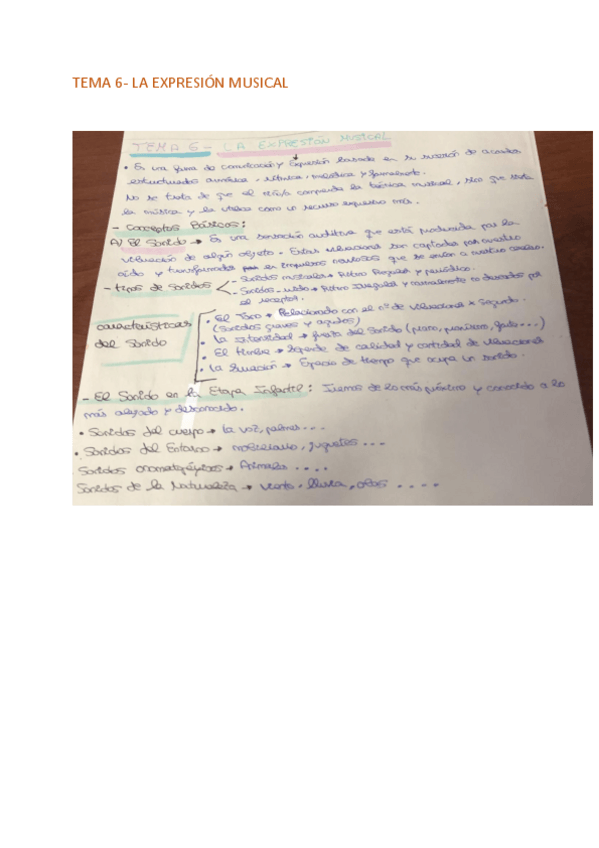 TEMA 6- LA EXPRESIÓN MUSICAL
TEMA 6 - LA EXPRESIÓN MUSICAL
• Es una forma de comunicación y Expresión basada en la sucesión de
estructurados rítmica, melódica y formalmente.
No se trata de que el niño/a comprenda la teórica musical, sino que viva
la música y la utilice como un recurso expresivo más.
- Conceptos Básicos:
A) El Sonido → Es una sensación auditiva que está producida por la
vibración de algún objeto. Estas vibraciones son captadas por nuestro
oído y transformadas en impulsos nerviosos que se envían a nuestro cerebro.
- Sonidos musicales → Ritmo Regular y periódico.
- Tipos de Sonidos
- Sonidos - ruido → Ritmo Irregular y normalmente no deseados por
el receptor.
características
del Sonido
• El Tono → Relacionado con el nº de vibraciones x Segundo.
(Sonidos graves y agudos)
• La intensidad → fuerza del Sonido (piano, pianísimo, ...)
• El timbre → Depende de calidad y cantidad de vibraciones
• La Duración → Espacio de tiempo que ocupa un sonido.
- El Sonido en la Etapa Infantil: Iremos de lo más próximo y conocido a lo
más alejado y desconocido.
• Sonidos del cuerpo → La voz, palmas...
• Sonidos del Entorno → mobiliario, juguetes...
Sonidos onomatopéyicos → Animales....
Sonidos de la Naturaleza → viento, lluvia, olas....